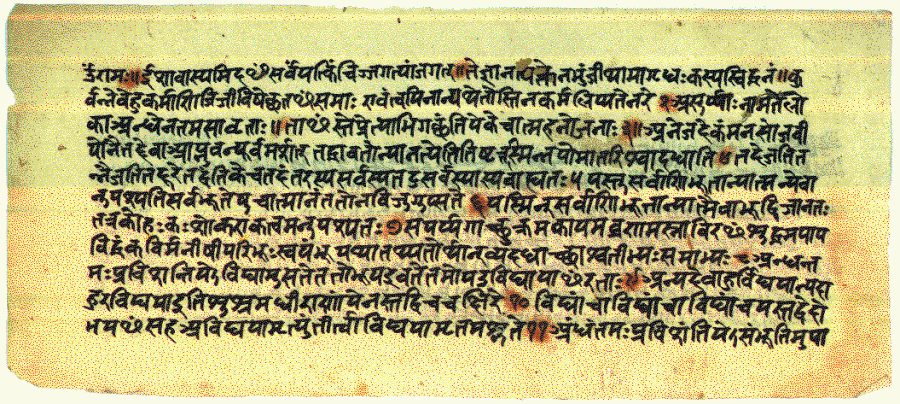 ॐ राम॥ ईशावास्यमिदꣳसर्वंयत्किंचिज्जगत्यांजगत्॥तेनत्यक्तेनभुंजीथामागृधःकस्यस्विद्धनं॥कु
र्वन्नेवेहकर्माणिजिजीविषेछतꣳसमाः एवंत्वयिनान्यथेतोस्तिनकर्मलिप्यतेनरे २असुर्य्याःनामतेलो
काअन्धेनतमसावृताः॥ताꣳस्तेप्रेत्याभिगछंतियेकेचात्महनोजनाः ३॥अनेजदेकंमनसोजवी
योनैनद्देवाआप्नुवन्पूर्वमर्शत् तद्धावतोन्यानत्येतितिष्टत्तस्मिन्नपोमातरिश्वादधाति ४ तदेजतित
न्नैजतितद्दूरेतद्वंतिकेतदंतरस्यसर्वस्यतदुसर्वस्यास्यबाह्यतः ५ यस्तुसर्वाणिभूतान्यात्मन्येवा
नुपश्यतिसर्वभूतेषुचात्मानंततोनविजुगुप्सते ६ यस्मिन्सर्वाणिभूतान्यात्मैवाभूद्विजानतः
तत्रकोमोहःकःशोकएकत्वमनुपश्यतः ७ सपर्य्यगाच्छुक्रमकायमव्रणमस्नाविरꣳशुद्धमपाप
विद्धंकविर्मनीषीपरिभूःस्वयंभूर्यथातथ्यतोर्थान्व्यदधाच्छाश्वतीभ्यःसमाभ्यः ८ अन्धन्त
मःप्रविशन्तियेऽविद्यामुपासतेततोभूयइवतेतमोयउविद्यायाꣳरताः ९ अन्यदेवाहुर्विद्ययान्यदा
हुरविद्ययाइतिशुश्रुमधीराणांयेनस्तद्विचचक्षिरे १० विद्यांचाविद्यांचयस्तद्वेदो
भयꣳसह अविद्ययामृत्युंतीर्त्वाविद्ययामृतमश्नुते ११ अंधंतमःप्रविशंतियेऽसंभूतिमुपा